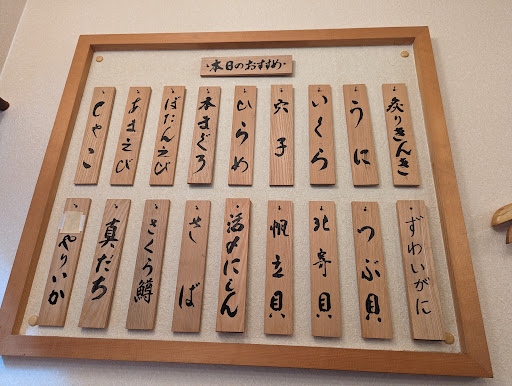 ・本日のおすすめ・
炙りきんき
うに
いくら
穴子
ひらめ
本まぐろ
ぼたんえび
あまえび
しゃこ
ずわいがに
つぶ貝
北寄貝
帆立貝
活〆にしん
さくら鱒
真だち
やりいか